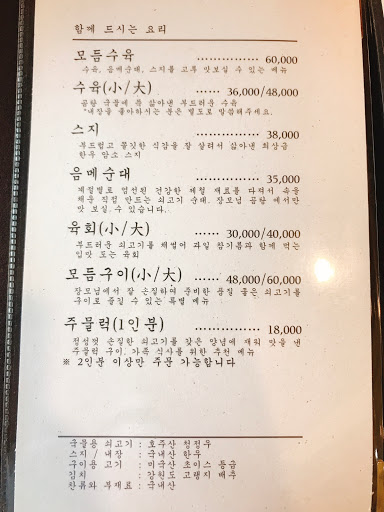 함께 드시는 요리
모듬수육 60,000
수육, 음메순대, 스지를 고루 맛보실 수 있는 메뉴
수육(小/大) 36,000/48,000
곰탕 국물에 푹 삶아낸 부드러운 수육
*내장을 좋아하시는 분은 별도로 말씀해주세요.
스지 38,000
부드럽고 쫄깃한 식감을 잘 살려서 삶아낸 최상급
한우 암소 스지
음메순대 35,000
계절별로 엄선된 건강한 제철 재료를 다져서 속을
채운 직접 만드는 쇠고기 순대. 장모님 곰탕 에서만
맛 보실 수 있습니다.
육회(小/大) 30,000/40,000
부드러운 쇠고기를 채썰어 과일 참기름과 함께 먹는
입맛 도는 육회
모듬구이(小/大) 48,000/60,000
장모님께서 잘 손질하여 준비한 품질 좋은 쇠고기를
구이로 즐길 수 있는 특별 메뉴
주물럭(1인분) 18,000
정성껏 손질한 쇠고기를 갖은 양념에 재워 맛을 낸
주물럭 구이. 가족 식사를 위한 추천 메뉴
※ 2인분 이상만 주문 가능합니다
국물용 쇠고기 : 호주산 청정우
스지 / 내장 : 국내산 한우
구이용 고기 : 미국산 초이스 등급
김치 : 강원도 고랭지 배추
잔류와 부재료 : 국내산